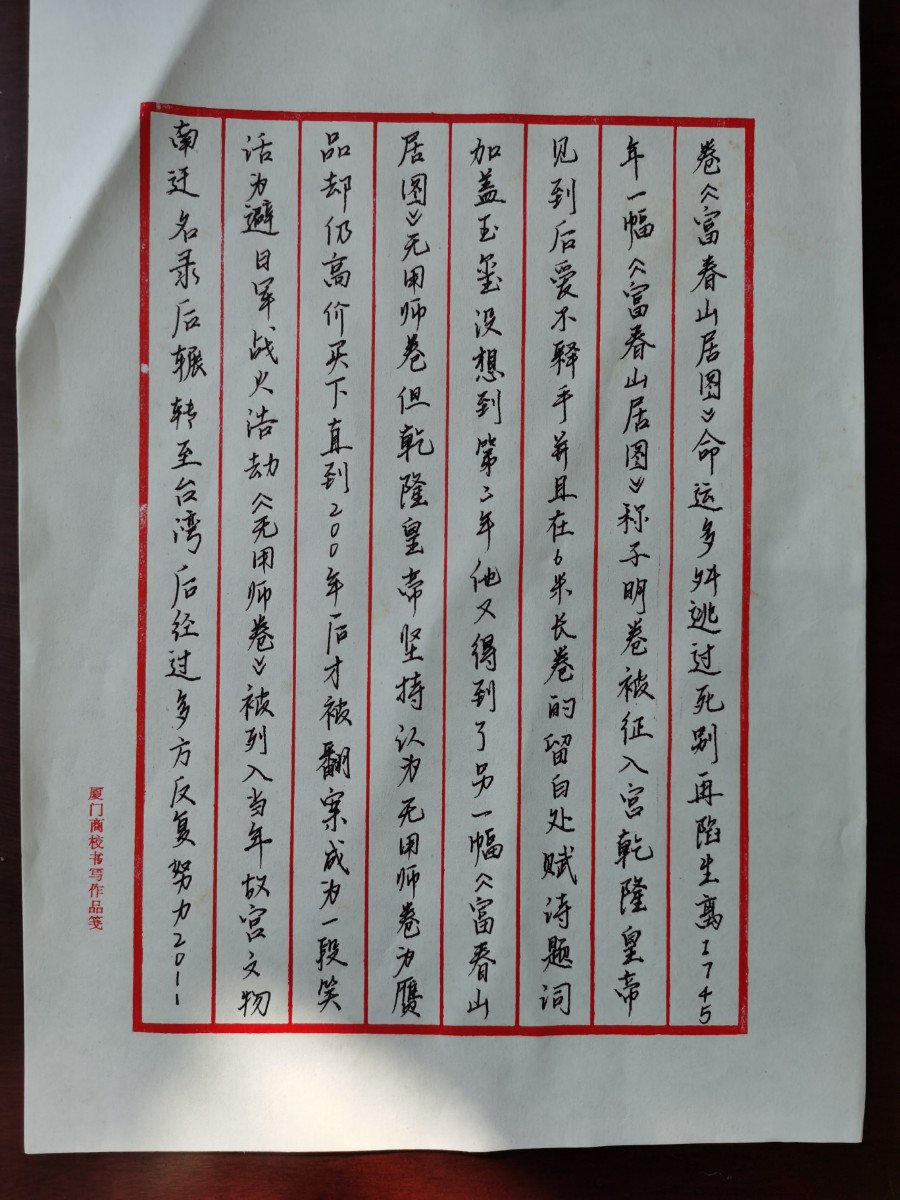 卷《富春山居图》命运多舛逃过死别再陷生离1745
年一幅《富春山居图》称子明卷被征入宫乾隆皇帝
见到后爱不释手并且在6米长卷的留白处赋诗题词
加盖玉玺没想到第二年他又得到了另一幅《富春山
居图》无用师卷但乾隆皇帝坚持认为无用师卷为赝
品却仍高价买下直到200年后才被翻案成为一段笑
话为避日军战火浩劫《无用师卷》被列入当年故宫文物
南迁名录后辗转至台湾后经过多方反复努力2011
厦门商校书写作品笺